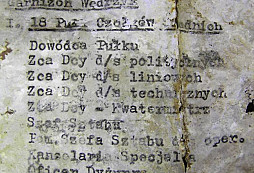 Garnizon Wędrzyn
1. 18 Pułk Czołgów Średnich
Dowódca Pułku
Zca Dcy d/s politycznych
Zca Dcy d/s liniowych
Zca Dcy d/s technicznych
Zca Dcy - Kwatermistrz
Szef Sztabu
Pom. Szefa Sztabu d/s oper.
Kancelaria Specjalna
Oficer Dyżurny